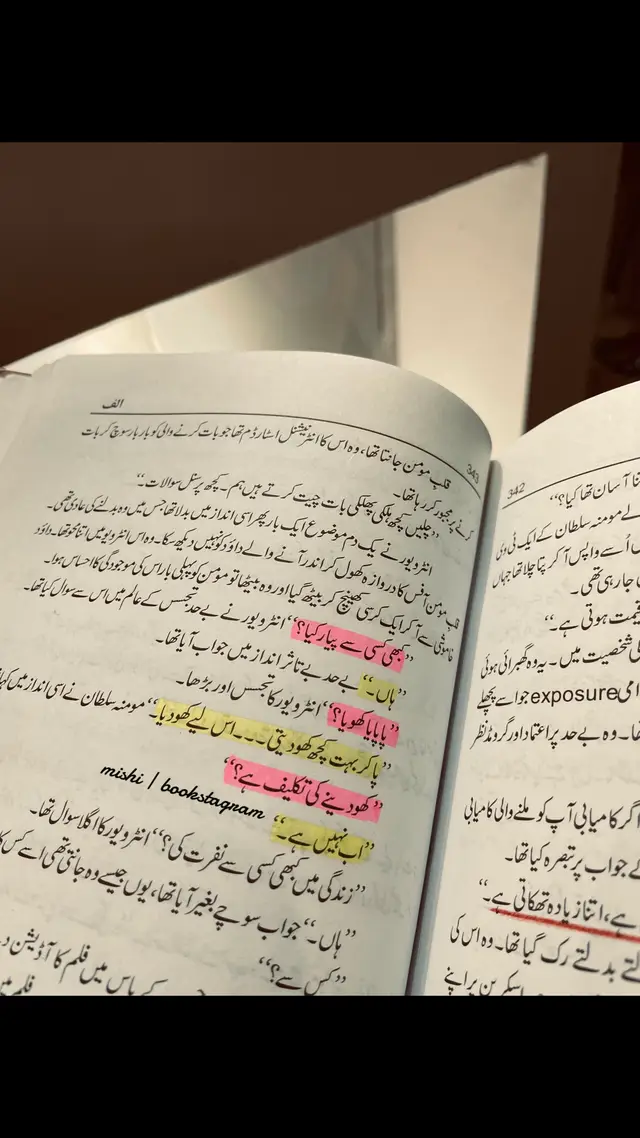 342
نا آسان تھا کیا؟“
لے مومنہ سلطان کے ایک ٹی وی
اُسے واپس آ کر پتا چلا تھا جہاں
جا رہی تھی۔
قیمت ہوتی ہے۔“
شخصیت میں۔ یہ وہ گھبرائی ہوئی
exposure جو اسے پچھلے
تھا۔ وہ بے حد پر اعتماد اور گرومڈ نظر
اگر کامیابی آپ کو ملنے والی کامیابی
کے جواب پر تبصرہ کیا تھا۔
ہے، اتنا زیادہ تھکاتی ہے۔“
بدلتے رک گیا تھا۔ وہ اس کی
اسکرین پر اپنے
343
الف
قلبِ مومن جانتا تھا، وہ اس کا انٹرنیشنل اسٹارڈم تھا جو بات کرنے والی کو بار بار سوچ کر بات
کرنے پر مجبور کر رہا تھا۔
”چلیں کچھ ہلکی پھلکی بات چیت کرتے ہیں ہم۔ کچھ پرسنل سوالات۔“
انٹرویور نے یک دم موضوع ایک بار پھر اسی انداز میں بدلا تھا جس میں وہ بدلنے کی عادی تھی۔
قلبِ مومن آفس کا دروازہ کھول کر اندر آنے والے داؤد کو نہیں دیکھ سکا۔ وہ اس انٹرویو میں اتنا محو تھا۔ داؤد
خاموشی سے آ کر ایک کرسی کھینچ کر بیٹھ گیا اور وہ بیٹھا تو مومن کو پہلی بار اس کی موجودگی کا احساس ہوا۔
”کبھی کسی سے پیار کیا؟“ انٹرویور نے بے حد تجسس کے عالم میں اس سے سوال کیا تھا۔
”ہاں۔“ بے حد بے تاثر انداز میں جواب آیا تھا۔
”پایا یا کھویا؟“ انٹرویور کا تجسس اور بڑھا۔
”پا کر بہت کچھ کھو دیتی۔۔۔ اس لیے کھو دیا۔“ مومنہ سلطان نے اسی انداز میں کہا
”کھو دینے کی تکلیف ہے؟“
mishi | bookstagram
”اب نہیں ہے۔“
”زندگی میں کبھی کسی سے نفرت کی؟“ انٹرویور کا اگلا سوال تھا۔
”ہاں۔“ جواب سوچے بغیر آیا تھا، یوں جیسے وہ جانتی تھی اسے کس کا
”کس سے؟“
کے پاس میں فلم کا آڈیشن د